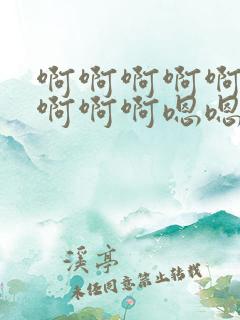 啊啊啊啊啊
啊啊啊嗯嗯
溪亭
未经同意禁止转载